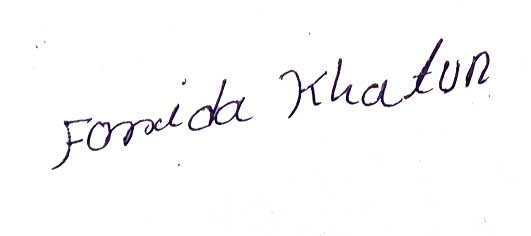 Forida Khatun